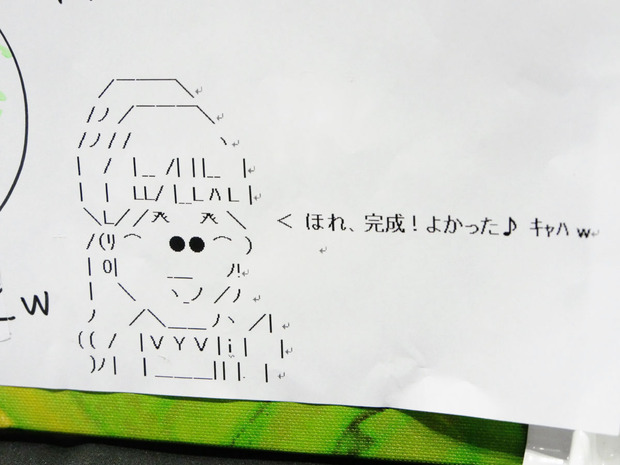 < ほれ、完成！よかった♪ ｷｬﾊ w
w